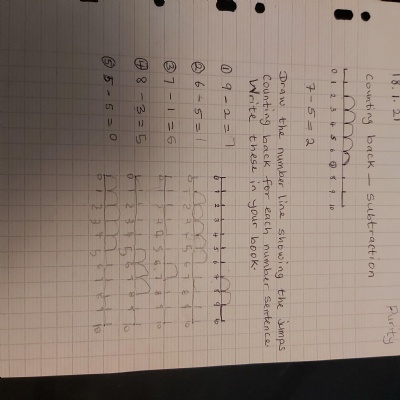 18.1.21
Purity
Counting back - subtraction
0 1 2 3 4 5 6 7 8 9 10
7 - 5 = 2
Draw the number line showing the jumps
counting back for each number sentence.
Write these in your book.
① 9 - 2 = 7
0 1 2 3 4 5 6 7 8 9 10
② 6 - 5 = 1
0 1 2 3 4 5 6 7 8 9 10
③ 7 - 1 = 6
0 1 2 3 4 5 6 7 8 9 10
④ 8 - 3 = 5
0 1 2 3 4 5 6 7 8 9 10
⑤ 5 - 5 = 0
0 1 2 3 4 5 6 7 8 9 10